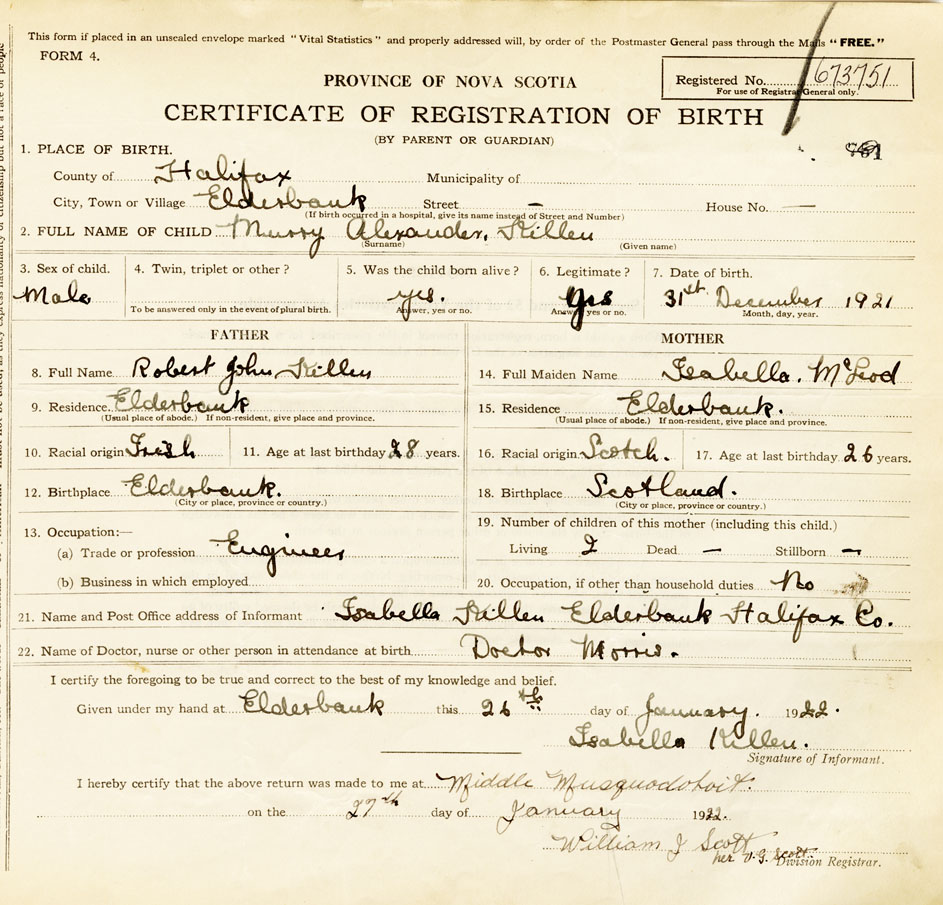 This form if placed in an unsealed envelope marked "Vital Statistics" and properly addressed will, by order of the Postmaster General pass through the Mails "FREE."
FORM 4.
Registered No. 673751
For use of Registrar General only.
PROVINCE OF NOVA SCOTIA
CERTIFICATE OF REGISTRATION OF BIRTH
(BY PARENT OR GUARDIAN)
1. PLACE OF BIRTH.
County of Halifax Municipality of
City, Town or Village Elderbank Street — House No. —
(If birth occurred in a hospital, give its name instead of Street and Number)
2. FULL NAME OF CHILD Murry Alexander, Killen
(Surname) (Given name)
3. Sex of child. 4. Twin, triplet or other? 5. Was the child born alive? 6. Legitimate? 7. Date of birth.
Male yes. Yes 31st December 1921
To be answered only in the event of plural birth. Answer, yes or no. Answer, yes or no. Month, day, year.
FATHER
8. Full Name Robert John Killen
9. Residence. Elderbank
(Usual place of abode.) If non-resident, give place and province.
10. Racial origin Irish 11. Age at last birthday 28 years.
12. Birthplace Elderbank.
(City or place, province or country.)
13. Occupation:—
(a) Trade or profession Engineer
(b) Business in which employed
MOTHER
14. Full Maiden Name Isabella. McLeod
15. Residence Elderbank.
(Usual place of abode.) If non-resident, give place and province.
16. Racial origin Scotch. 17. Age at last birthday 26 years.
18. Birthplace Scotland.
(City or place, province or country.)
19. Number of children of this mother (including this child.)
Living 2 Dead — Stillborn —
20. Occupation, if other than household duties No
21. Name and Post Office address of Informant Isabella Killen Elderbank Halifax Co.
22. Name of Doctor, nurse or other person in attendance at birth Doctor Morris.
I certify the foregoing to be true and correct to the best of my knowledge and belief.
Given under my hand at Elderbank this 26th day of January. 1922.
Isabella Killen.
Signature of Informant.
I hereby certify that the above return was made to me at Middle Musquodoboit.
on the 27th day of January 1922.
William J Scott
per V. G. Scott.
Division Registrar.